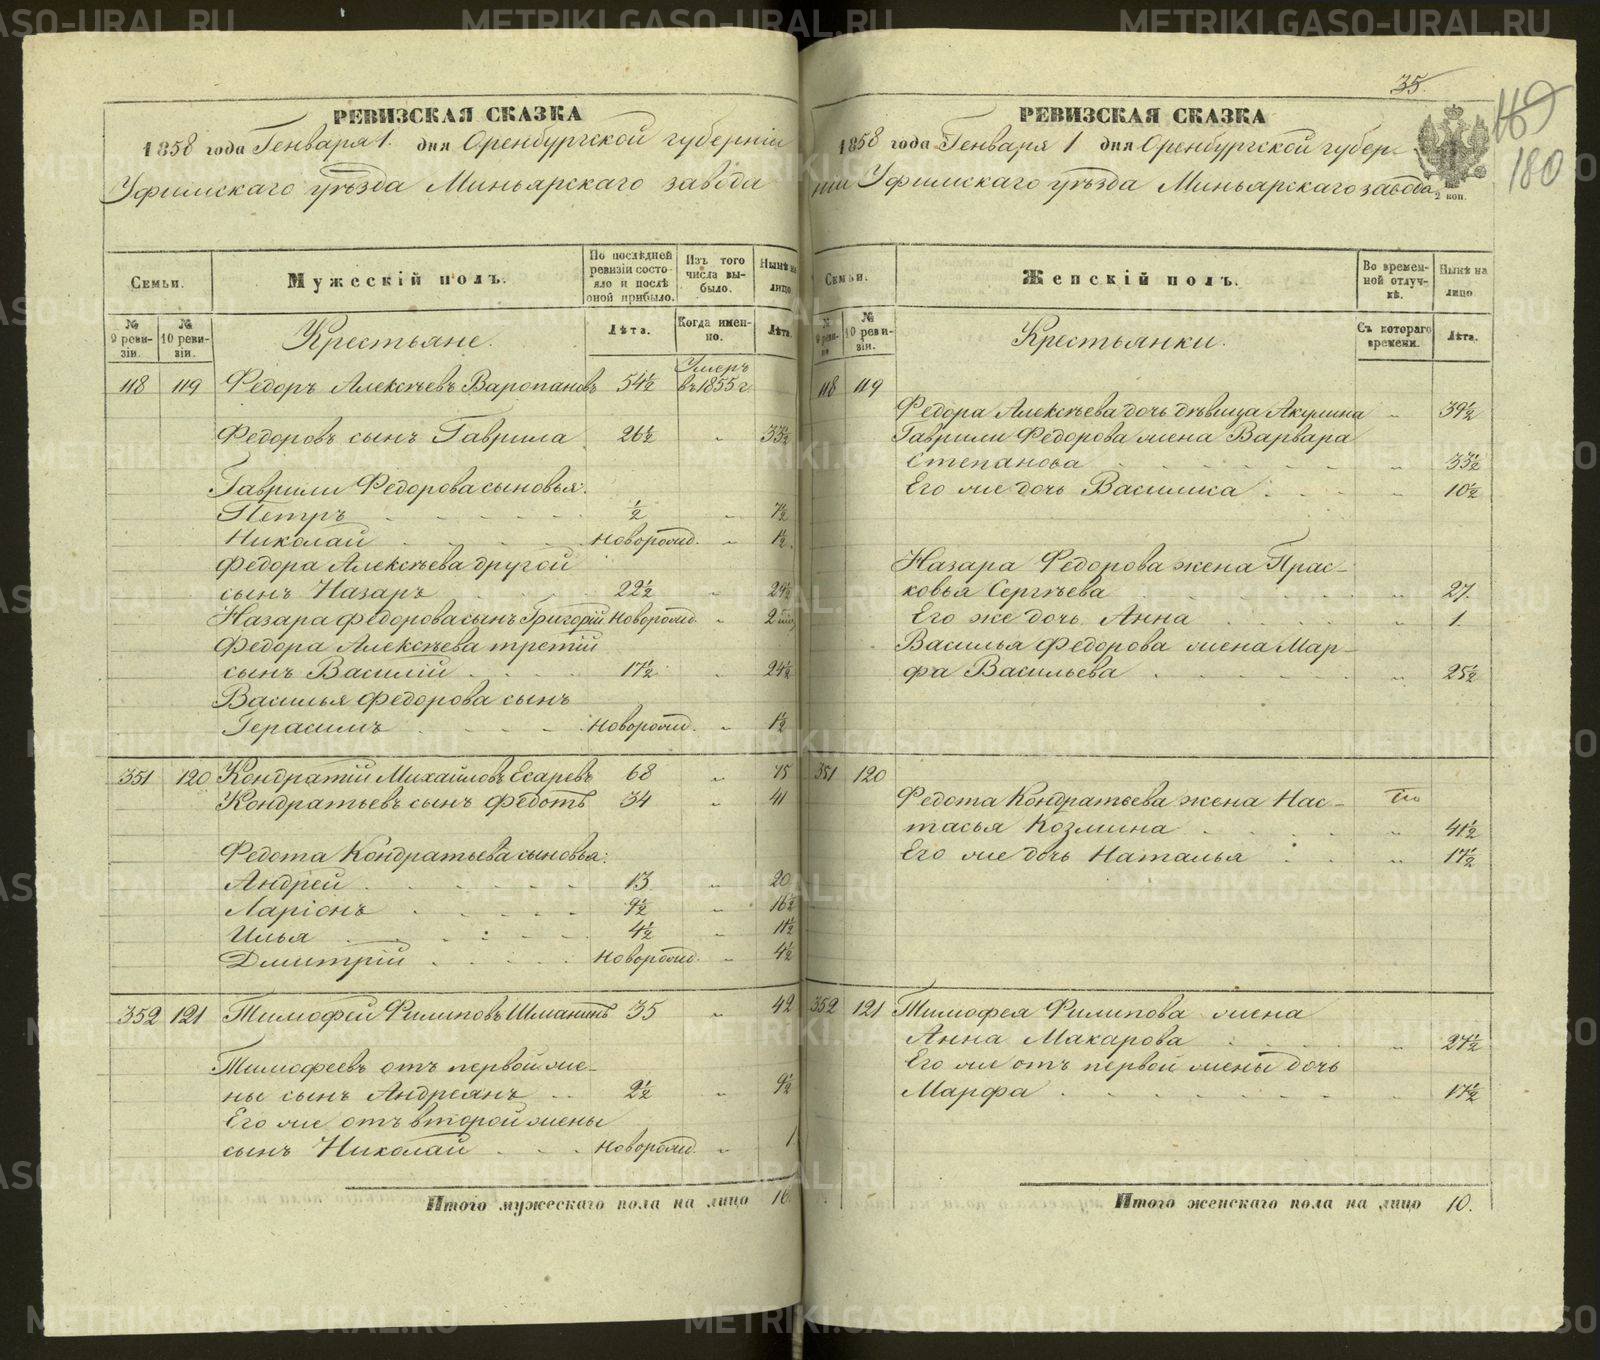 РЕВИЗСКАЯ СКАЗКА
1858 года Генваря 1. дня Оренбургской губерніи
Уфимскаго уѣзда Миньярскаго завода
Семьи.
Мужескій полъ.
По послѣдней ревизіи состояло и послѣ оной прибыло.
Изъ того числа выбыло.
Нынѣ на лицо.
№ 9 ревизіи.
№ 10 ревизіи.
Крестьяне.
Лѣта.
Когда именно.
Лѣта.
118 119 Федоръ Алексѣевъ Варопановъ 54½ Умеръ въ 1855 г.
Федоровъ сынъ Гаврила 26½ „ 33½
Гаврили Федорова сыновья:
Петръ ½ „ 7½
Николай новорожд. „ 1½
Федора Алексѣева другой
сынъ Назаръ 22½ „ 29½
Назара Федорова сынъ Григорій новорожд. „ 2
Федора Алексѣева третій
сынъ Василій 17½ „ 24½
Василья Федорова сынъ
Герасимъ новорожд. „ 1½
351 120 Кондратій Михайловъ Есаревъ 68 „ 75
Кондратьевъ сынъ Федотъ 34 „ 41
Федота Кондратьева сыновья:
Андрей 13 „ 20
Ларіонъ 9½ „ 16½
Илья 4½ „ 11½
Дмитрій новорожд. „ 4½
352 121 Тимофей Филиповъ Шманинъ 35 „ 42
Тимофеевъ отъ первой же-
ны сынъ Андреянъ 2½ „ 9½
Его же отъ второй жены
сынъ Николай новорожд. „ 1
Итого мужескаго пола на лицо 16.
35.
169
180
РЕВИЗСКАЯ СКАЗКА
1858 года Генваря 1 дня Оренбургской губер-
ніи Уфимскаго уѣзда Миньярскаго завода
2 коп.
Семьи.
Женскій полъ.
Во временной отлучкѣ.
Нынѣ на лицо.
№ 9 ревизіи
№ 10 ревизіи.
Крестьянки.
Съ котораго времени.
Лѣта.
118 119
Федора Алексѣева дочь дѣвица Акулина „ 39½
Гаврили Федорова жена Варвара
Степанова „ 33½
Его же дочь Василиса „ 10½
Назара Федорова жена Прас-
ковья Сергѣева „ 27.
Его же дочь Анна „ 1.
Василья Федорова жена Мар-
фа Васильева „ 25½
351 120
Федота Кондратьева жена Нас-
тасья Козмина „ 41½
Его же дочь Наталья „ 17½
352 121 Тимофея Филипова жена
Анна Макарова „ 27½
Его же отъ первой жены дочь
Марфа „ 17½
Итого женскаго пола на лицо 10.
METRIKI.GASO-URAL.RU